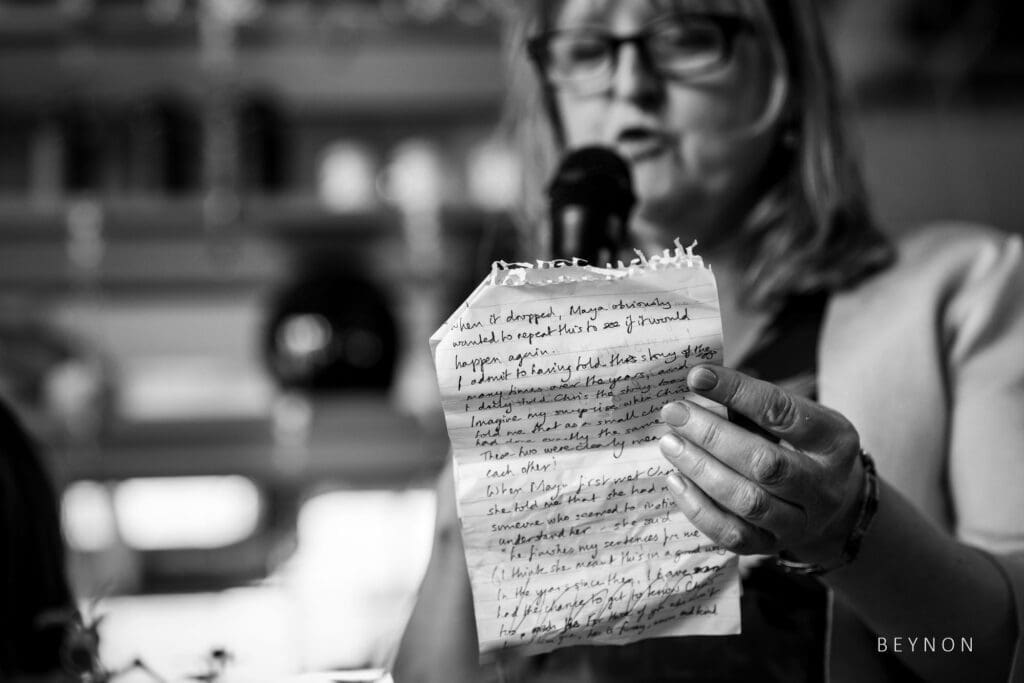 when it dropped, Maya obviously
wanted to repeat this to see if it would
happen again.
I admit to having told this story of
many times over the years, and
I duly told Chris the story
Imagine my surprise when Chris
told me that as a small
had done exactly the same
These two were clearly
each other!
When Maya first met Chris
she told me that she had
someone who seemed to
understand her - she said
"he finishes my sentences for me
(I think she meant this in a good way
In the years since then, I have
had the chance to get to know Chris
for those of you who
he is funny, and kind
BEYNON